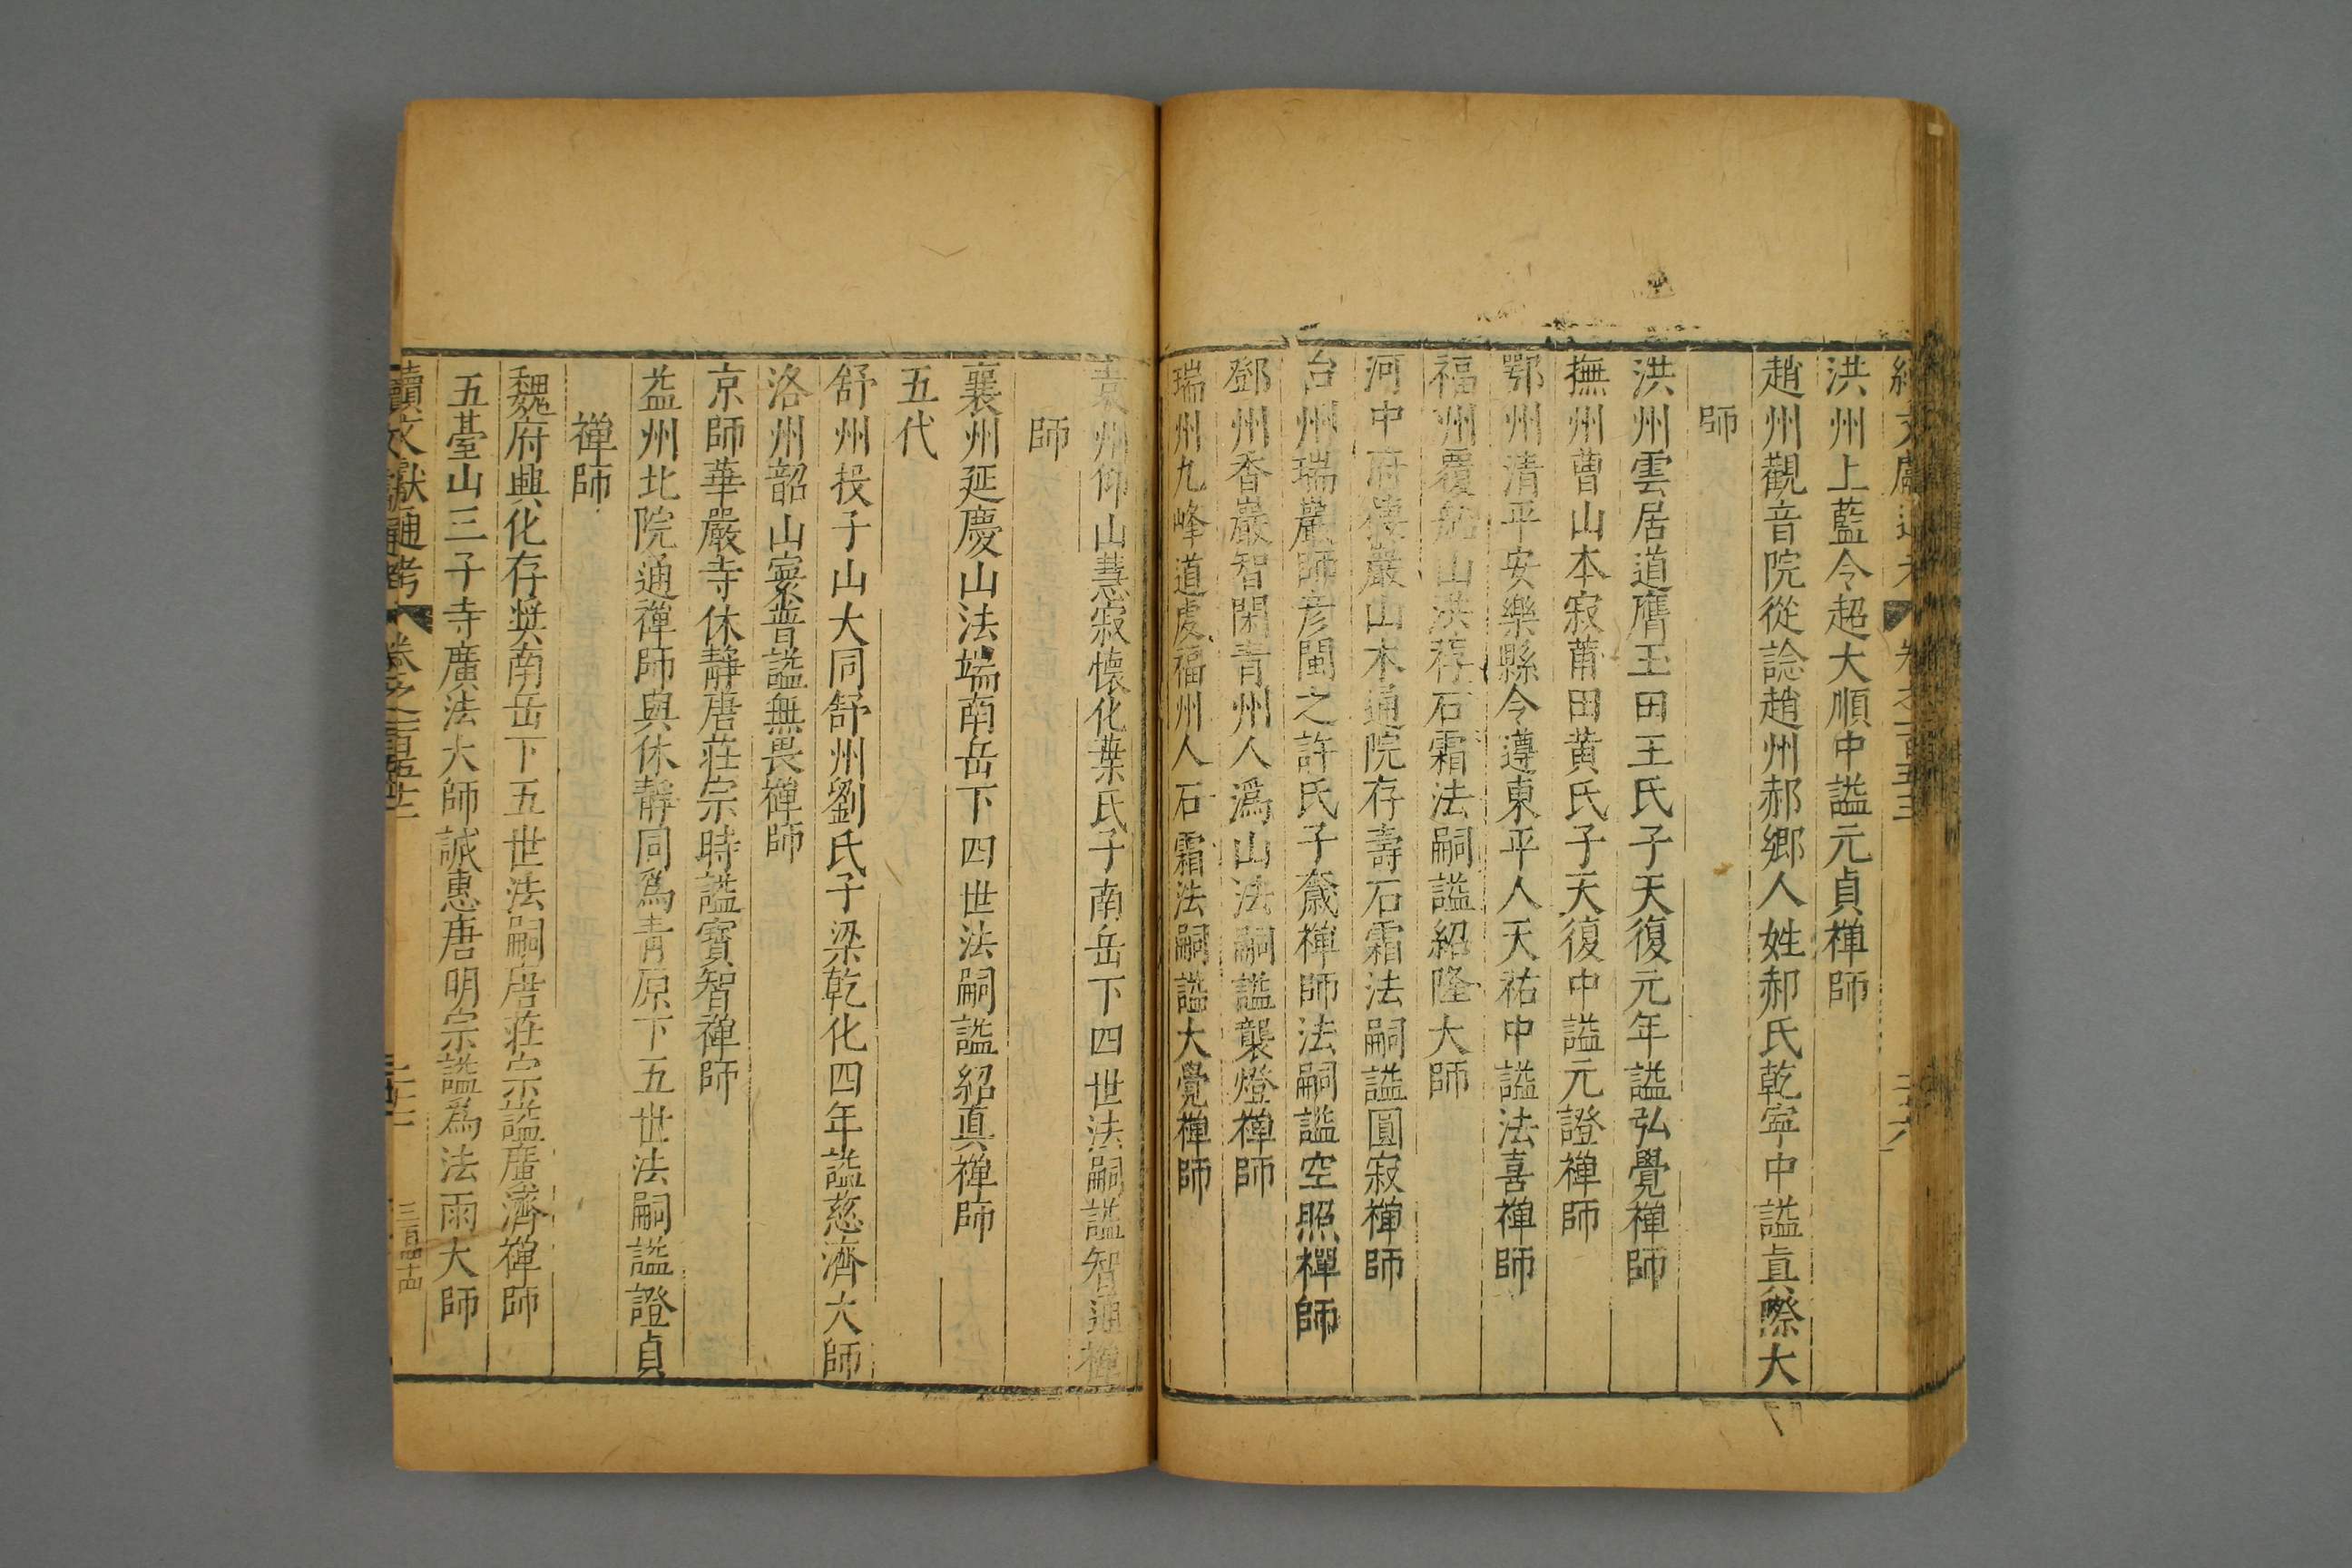 洪州上藍令超大順中謚元貞禪師
趙州觀音院從諗趙州郝鄉人姓郝氏乾寧中謚眞際大
師
洪州雲居道膺玉田王氏子天復元年謚弘覺禪師
撫州曹山本寂莆田黃氏子天復中謚元證禪師
鄂州清平安樂縣令遵東平人天祐中謚法喜禪師
福州覆船山洪荐石霜法嗣謚紹隆大師
河中府棲巖山木通院存壽石霜法嗣謚圓寂禪師
台州瑞巖師彥閩之許氏子奯禪師法嗣謚空照禪師
鄧州香巖智閑青州人潙山法嗣謚襲燈禪師
瑞州九峰道虔福州人石霜法嗣謚大覺禪師
袁州仰山慧寂懷化葉氏子南岳下四世法嗣謚智通禪
師
襄州延慶山法端南岳下四世法嗣謚紹真禪師
五代
舒州投子山大同舒州劉氏子梁乾化四年謚慈濟大師
洛州韶山寰普謚無畏禪師
京師華嚴寺休靜唐莊宗時謚寶智禪師
益州北院通禪師與休靜同爲青原下五世法嗣謚證貞
禪師
魏府興化存獎南岳下五世法嗣唐莊宗謚廣濟禪師
五臺山三子寺廣法大師誠惠唐明宗謚爲法雨大師
續文獻通考 卷之二百五十三
三百四十四